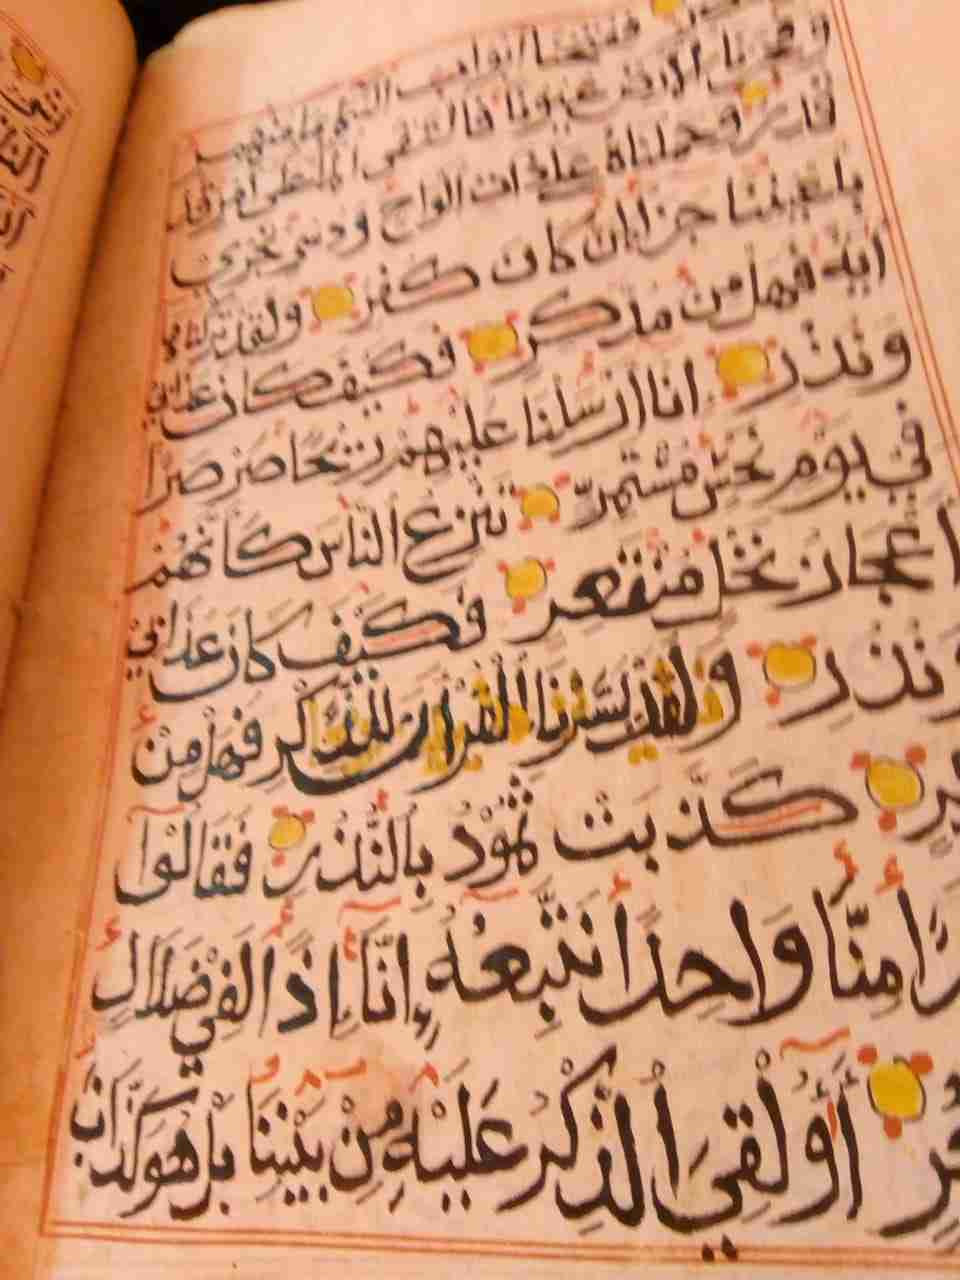 ففتحنا ابواب السماء بماء منهمر
وفجرنا الارض عيونا فالتقى الماء على امر قد
قدر وحملناه على ذات الواح ودسر تجري
باعيننا جزا لمن كان كفر ولقد تركناها
اية فهل من مدكر فكيف كان عذابي
ونذر انا ارسلنا عليهم ريحا صرصرا
في يوم نحس مستمر تنزع الناس كانهم
اعجاز نخل منقعر فكيف كان عذابي
ونذر ولقد يسرنا القران للذكر فهل من
كذبت ثمود بالنذر فقالوا
منا واحدا نتبعه انا اذا لفي ضلال
أؤلقي الذكر عليه من بيننا بل هو كذاب